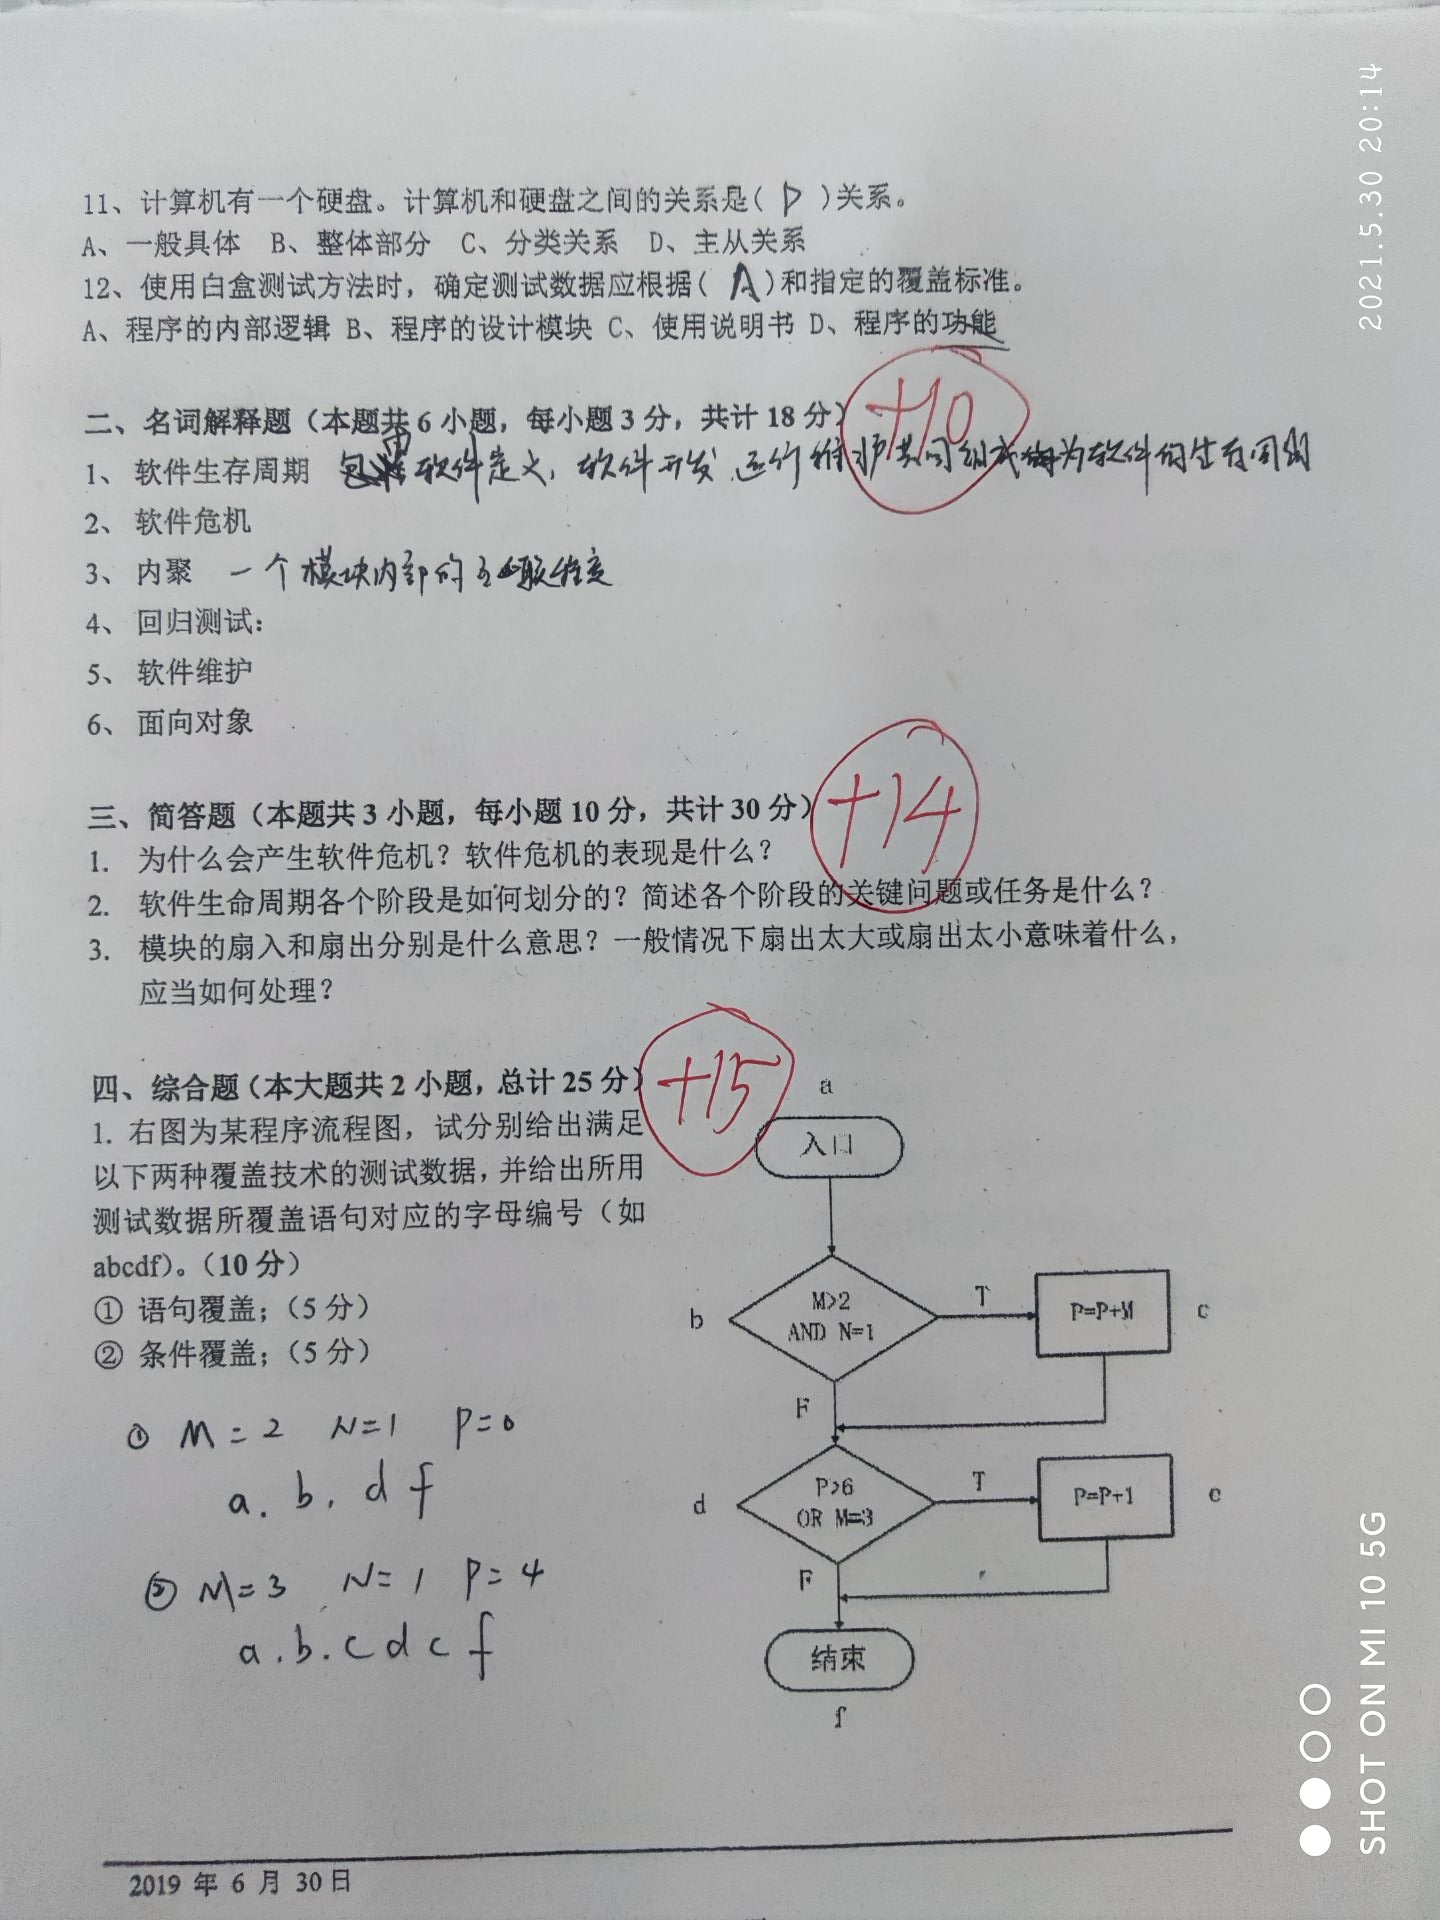 11、计算机有一个硬盘。计算机和硬盘之间的关系是( D )关系。
A、一般具体 B、整体部分 C、分类关系 D、主从关系
12、使用白盒测试方法时，确定测试数据应根据( A )和指定的覆盖标准。
A、程序的内部逻辑 B、程序的设计模块 C、使用说明书 D、程序的功能
二、名词解释题（本题共 6 小题，每小题 3 分，共计 18 分） +10
1、 软件生存周期 由软件定义，软件开发 运行维护共同组成 称为软件的生存周期
2、 软件危机
3、 内聚 一个模块内部的互联程度
4、 回归测试：
5、 软件维护
6、 面向对象
三、简答题（本题共 3 小题，每小题 10 分，共计 30 分） +14
1. 为什么会产生软件危机？软件危机的表现是什么？
2. 软件生命周期各个阶段是如何划分的？简述各个阶段的关键问题或任务是什么？
3. 模块的扇入和扇出分别是什么意思？一般情况下扇出太大或扇出太小意味着什么，
应当如何处理？
四、综合题（本大题共 2 小题，总计 25 分） +15
1. 右图为某程序流程图，试分别给出满足
以下两种覆盖技术的测试数据，并给出所用
测试数据所覆盖语句对应的字母编号（如
abcdf）。（10 分）
① 语句覆盖；（5 分）
② 条件覆盖；（5 分）
① M=2 N=1 P=0
a. b. d f
② M=3 N=1 P=4
a.b.c d c f
a
入口
b
M>2
AND N=1
T
P=P+M
c
F
d
P>6
OR M=3
T
P=P+1
e
F
结束
f
2019 年 6 月 30 日
2021.5.30 20:14
SHOT ON MI 10 5G